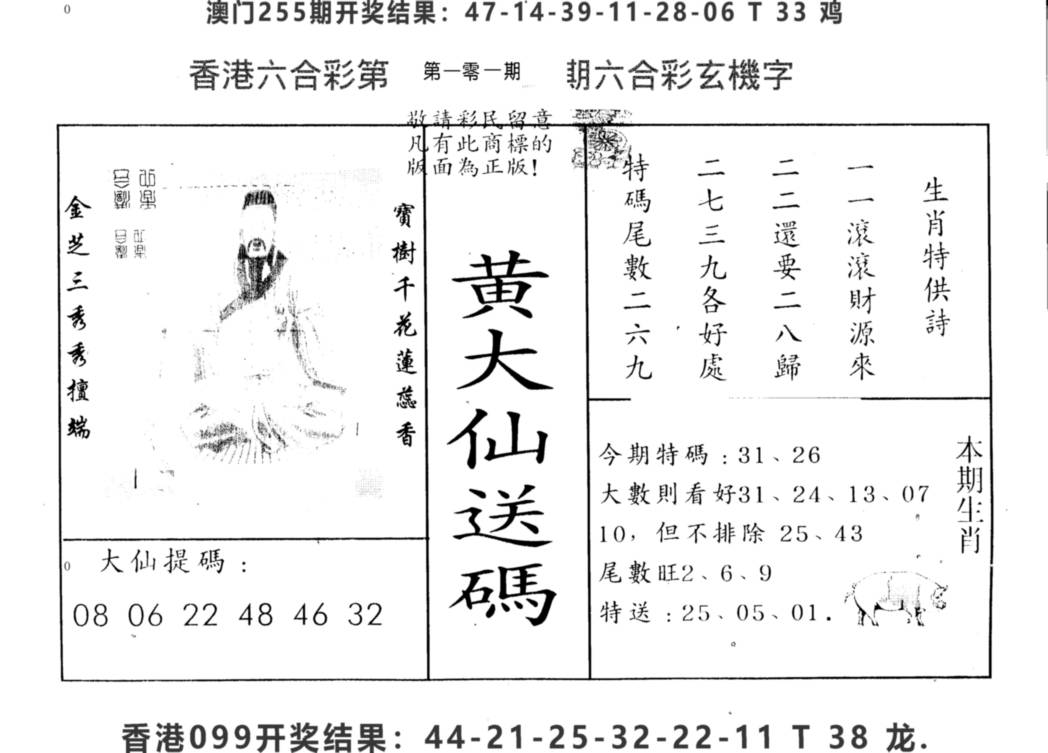 澳门255期开奖结果：47-14-39-11-28-06 T 33 鸡
香港六合彩第 第一零一期 期六合彩玄機字
敬請彩民留意
凡有此商標的
版面為正版!
金芝三秀秀擅端
寶樹千花蓮蕊香
大仙提碼：
08 06 22 48 46 32
黄大仙送碼
生肖特供詩
一一滾滾財源來
二二還要二八歸
二七三九各好處
特碼尾數二六九
本期生肖
今期特碼：31、26
大數則看好31、24、13、07
10，但不排除 25、43
尾數旺2、6、9
特送：25、05、01.
香港099开奖结果：44-21-25-32-22-11 T 38 龙.